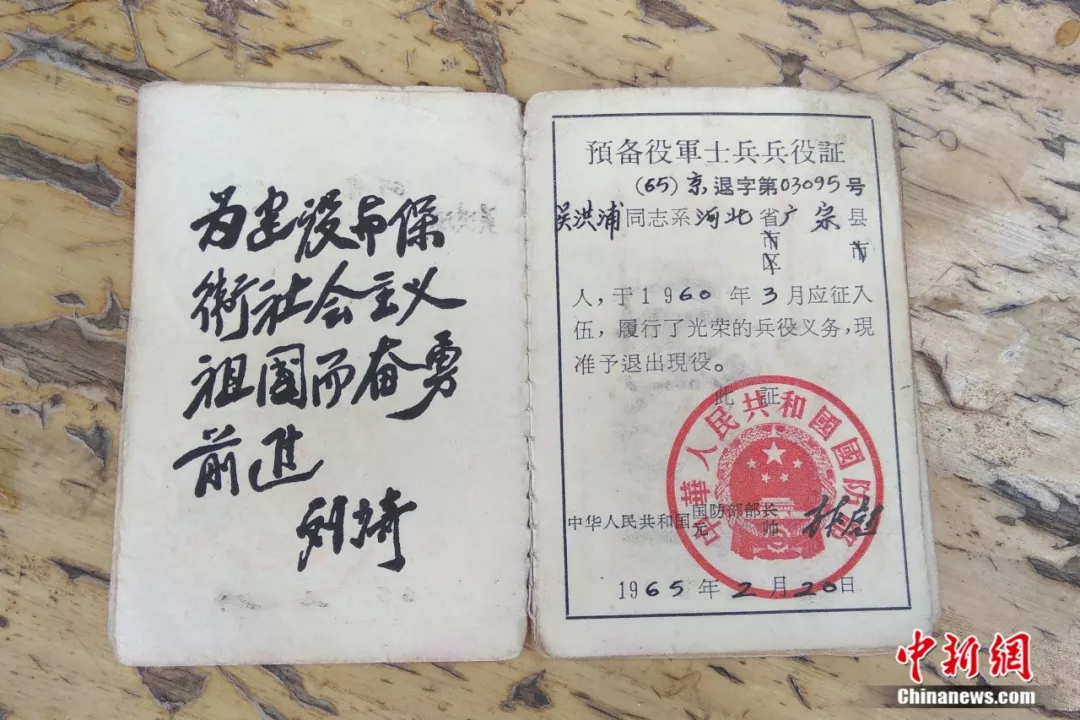 为建设与保
衛社会主义
祖國而奋勇
前進
預备役軍士兵兵役証
(65)京退字第03095号
吴洪浦同志系河北省广宗县
市 市
区
人,于1960年3月应征入
伍,履行了光荣的兵役义务,現
准予退出現役。
此 証
中華人民共和國國防部
中华人民共和国国防部长
元 帅 林彪
1965年2月20日
中新网
Chinanews.com